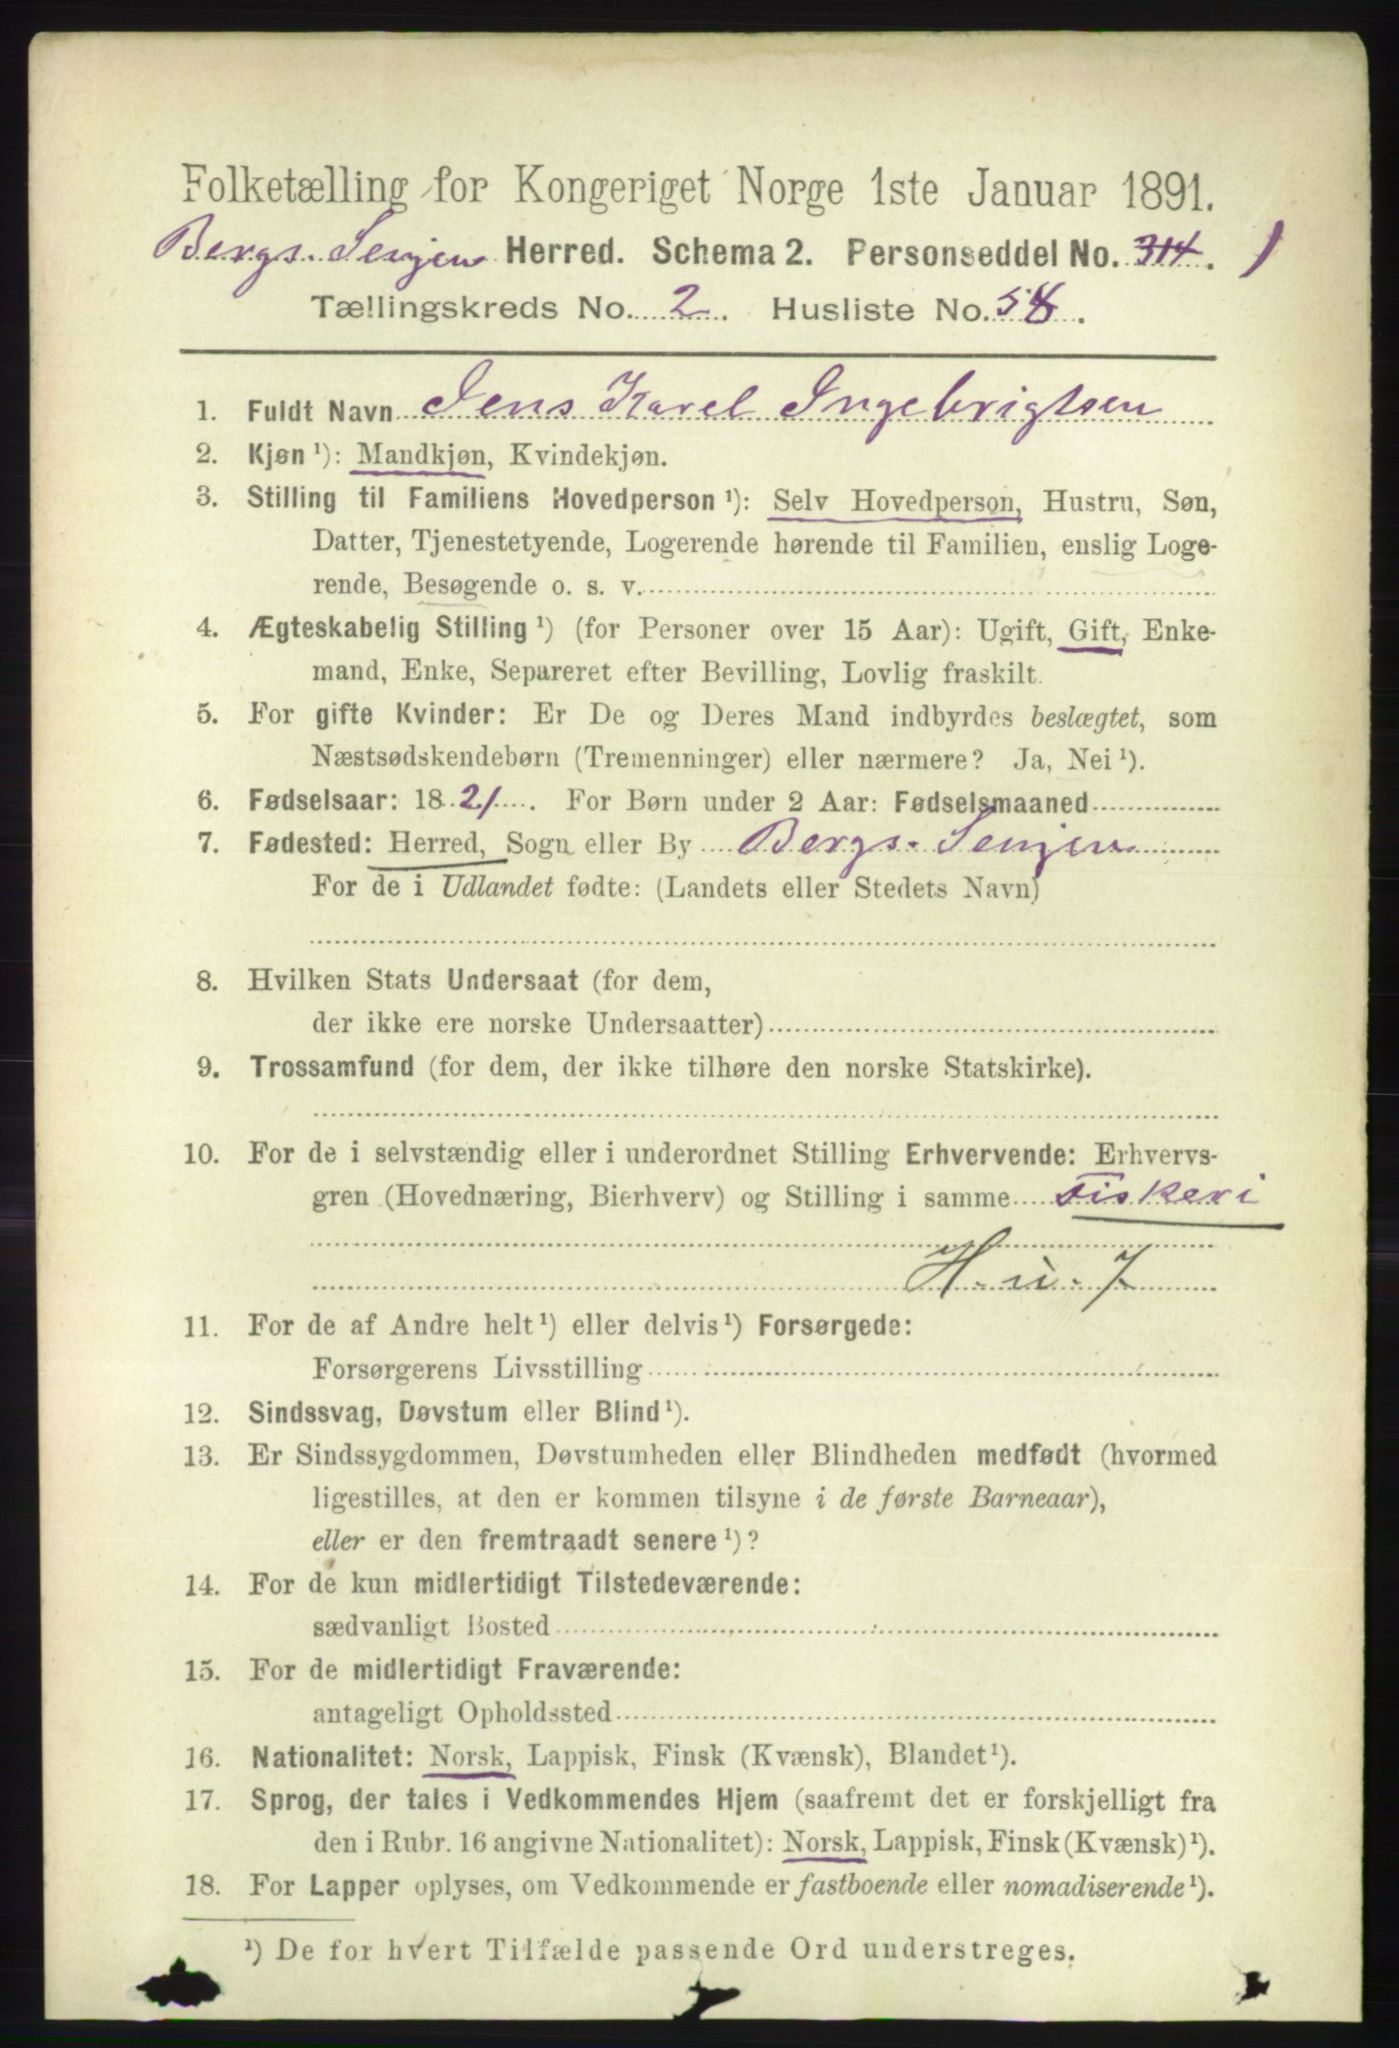 Folketælling for Kongeriget Norge 1ste Januar 1891.
Bergs. Senjen Herred. Schema 2. Personseddel No. 314. 1
Tællingskreds No. 2. Husliste No.
1. Fuldt Navn Jens Karel Ingebrigtsen
2. Kjøn ¹): Mandkjøn, Kvindekjøn.
3. Stilling til Familiens Hovedperson ¹): Selv Hovedperson, Hustru, Søn,
Datter, Tjenestetyende, Logerende hørende til Familien, enslig Loge-
rende, Besøgende o. s. v.
4. Ægteskabelig Stilling ¹) (for Personer over 15 Aar): Ugift, Gift, Enke-
mand, Enke, Separeret efter Bevilling, Lovlig fraskilt.
5. For gifte Kvinder: Er De og Deres Mand indbyrdes beslægtet, som
Næstsødskendebørn (Tremenninger) eller nærmere? Ja, Nei ¹).
6. Fødselsaar: 1821. For Børn under 2 Aar: Fødselsmaaned
7. Fødested: Herred, Sogn eller By Bergs. Senjen
For de i Udlandet fødte: (Landets eller Stedets Navn)
8. Hvilken Stats Undersaat (for dem,
der ikke ere norske Undersaatter)
9. Trossamfund (for dem, der ikke tilhøre den norske Statskirke).
10. For de i selvstændig eller i underordnet Stilling Erhvervende: Erhvervs-
gren (Hovednæring, Bierhverv) og Stilling i samme Fiskeri
H. u. 7
11. For de af Andre helt ¹) eller delvis ¹) Forsørgede:
Forsørgerens Livsstilling
12. Sindssvag, Døvstum eller Blind ¹).
13. Er Sindssygdommen, Døvstumheden eller Blindheden medfødt (hvormed
ligestilles, at den er kommen tilsyne i de første Barneaar),
eller er den fremtraadt senere ¹)?
14. For de kun midlertidigt Tilstedeværende:
sædvanligt Bosted
15. For de midlertidigt Fraværende:
antageligt Opholdssted
16. Nationalitet: Norsk, Lappisk, Finsk (Kvænsk), Blandet ¹).
17. Sprog, der tales i Vedkommendes Hjem (saafremt det er forskjelligt fra
den i Rubr. 16 angivne Nationalitet): Norsk, Lappisk, Finsk (Kvænsk) ¹).
18. For Lapper oplyses, om Vedkommende er fastboende eller nomadiserende ¹).
¹) De for hvert Tilfælde passende Ord understreges.